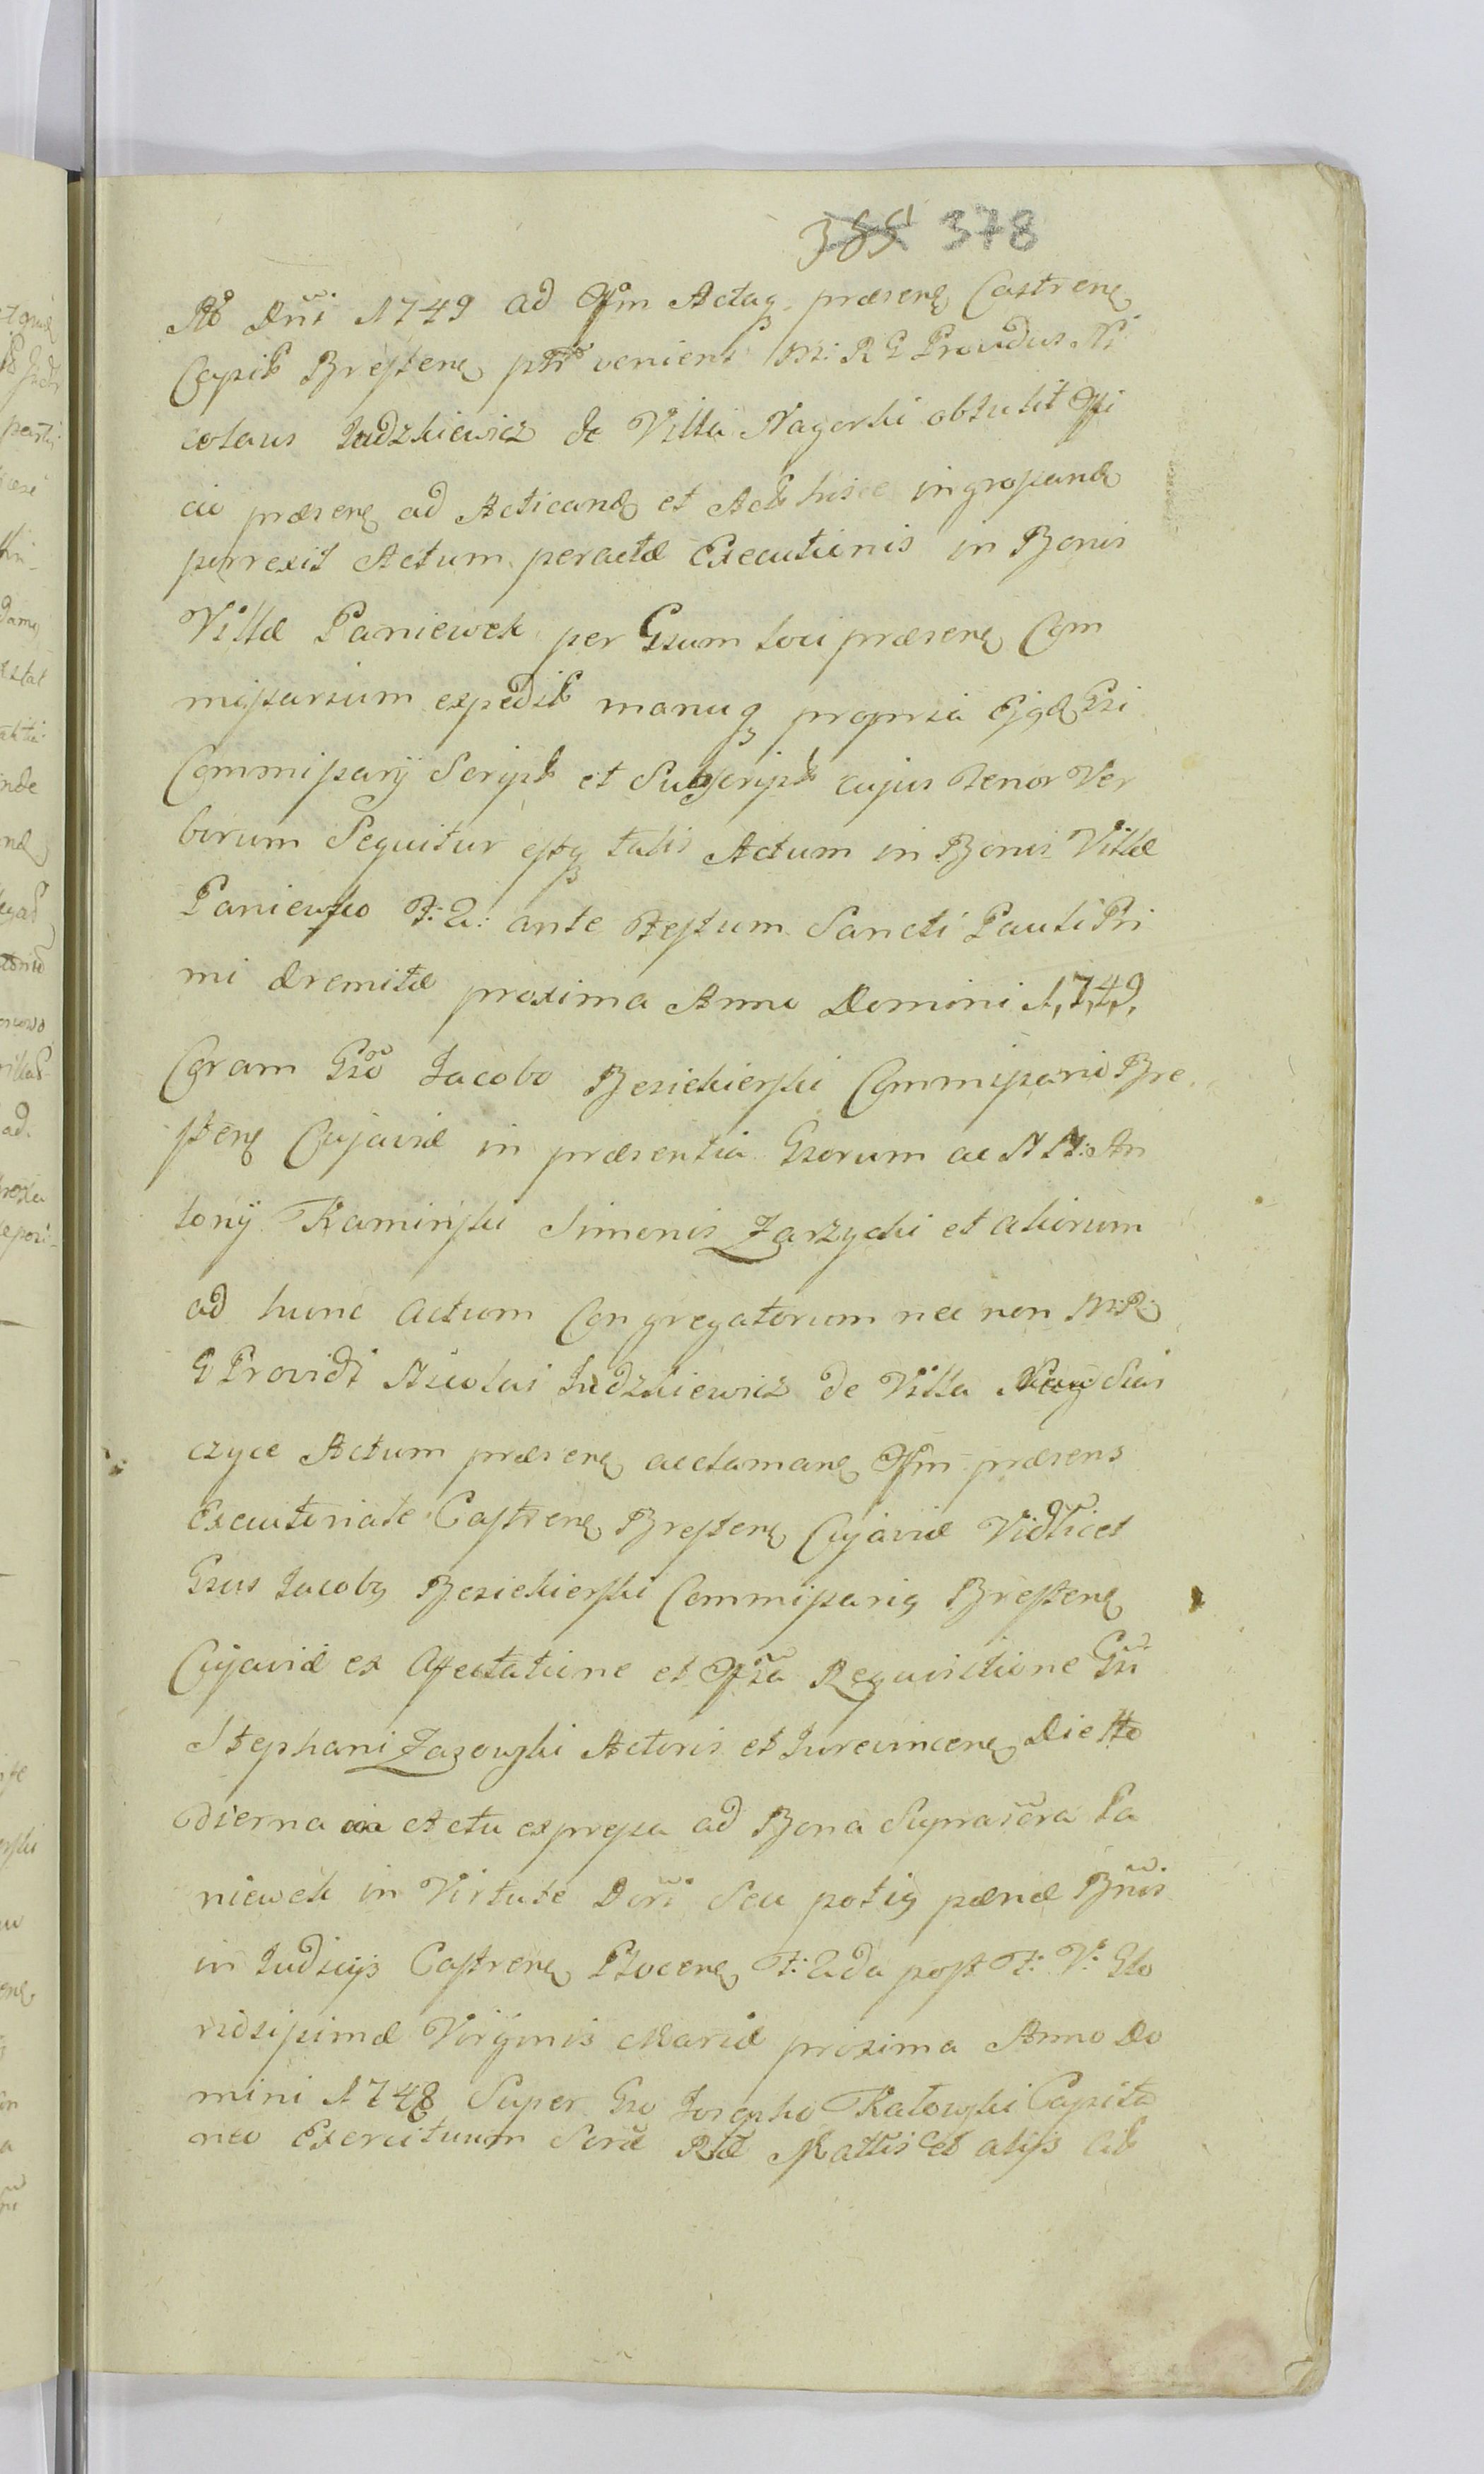 385 378
Ao Dni 1749 ad Offm Actaq præsenę Castrenę
Capit Brestenę psłr veniens M: R G Providus Ni
colaus Judzkiewicz de Villa Nagorki obtulit Offi
cio præsenę ad Acticandę et Act hisce ingrossandę
porrexit Actum peractæ Executionis in Bonis
Villæ Paniewek per Gsum loci præsenę Com
missarium expedit manuq propria Ejgdę Gsi
Commissarij Script et Subscript cujus Tenor Ver
borum Sequitur estq talis Actum in Bonis Villæ
Paniewko F: 2: ante Festum Sancti Pauli Pri
mi Æremitæ proxima Anno Domini 1,7,4,9,
Coram Gso Jacobo Besiekierski Commissario Bre
stenę Cujaviæ in præsentia Gsorum ac NN: An
tonij Kaminski Simonis Zarzycki et aliorum
ad hunc actum Congregatorum nec non M: R:
G Providi Nicolai Judzkiewicz de Villa
czyce Actum præsenę acclamanę Offm præsens
Executoriale Castrenę Brestenę Cujaviæ Vidlicet
Gsus Jacobg Besiekierski Commissarig Brestenę
Cujaviæ ex Affectatione et Offsa Requisitione Gsi
Stephani Zazowski Actoris et Jurevincenę Die Ho
dierna in Actu expressa ad Bona Suprascra Pa
niewek in Virtute Dcri Seu potig pænæ Bnis
in Judicijs Castrenę Plocenę F: 2da post F: V: Glo
riosissimæ Virginis Mariæ proxima Anno Do
mini 1748 Super Gso Josepho Katowski Capita
neo Exercituum Sræ Rłæ Mattis et alijs Cit